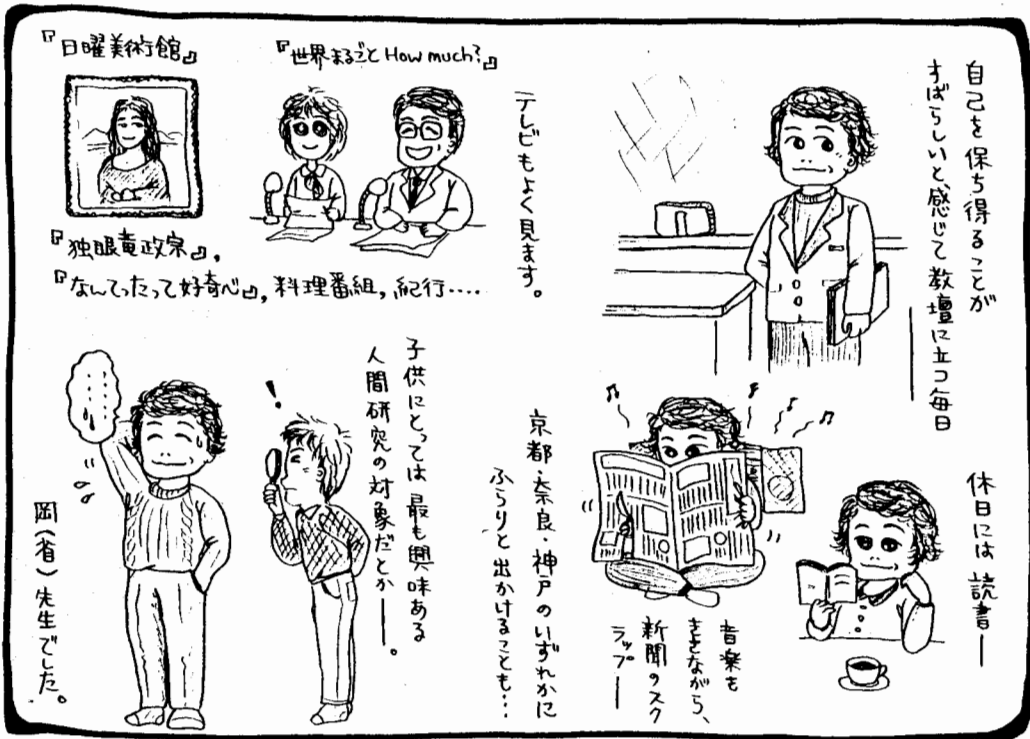 自己を保ち得ることが
すばらしいと、感じて教壇に立つ毎日
休日には読書―
音楽を
ききながら、
新聞のスク
ラップ―
京都・奈良・神戸のいずれかに
ふらりと出かけることも…
テレビもよく見ます。
『世界まるごとHow much?』
『日曜美術館』
『独眼竜政宗』,
『なんてったって好奇心』, 料理番組, 紀行‥‥
子供にとっては最も興味ある
人間研究の対象だとか―。
!
岡(省)先生でした。